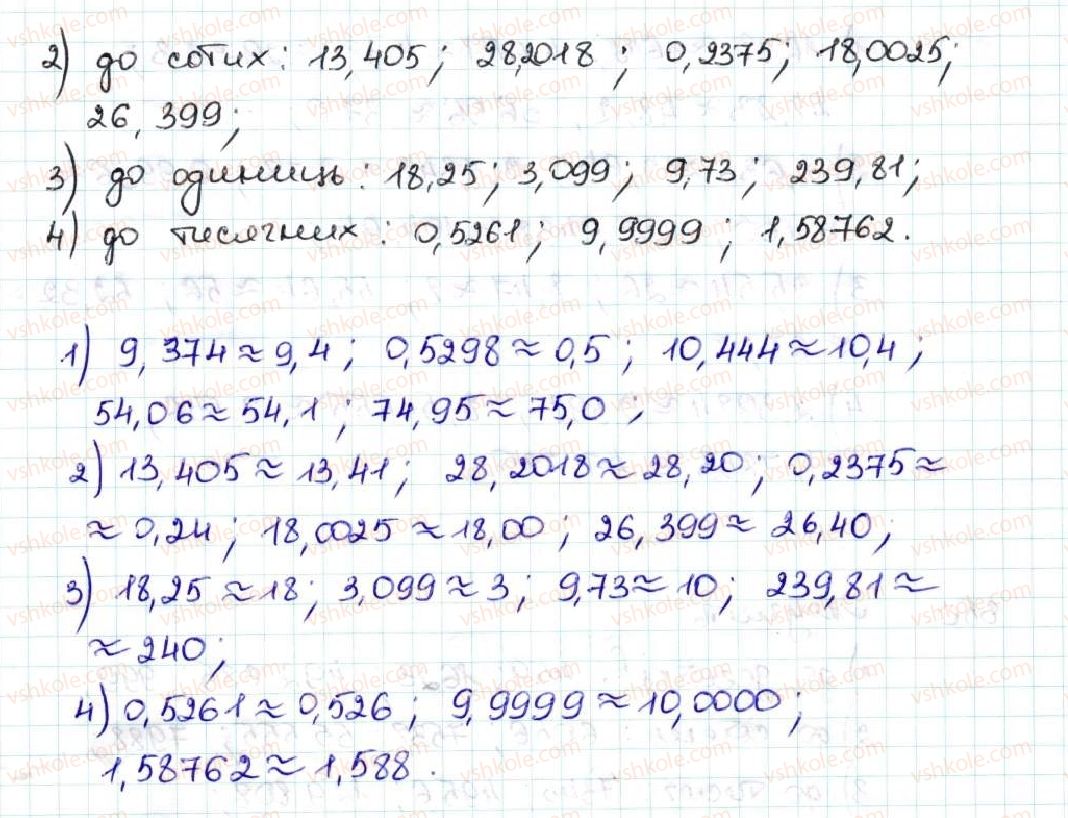 2) до сотих: 13,405; 28,2018; 0,2375; 18,0025;
26,399;
3) до одиниць: 18,25; 3,099; 9,73; 239,81;
4) до тисячних: 0,5261; 9,9999; 1,58762.
1) 9,374≈9,4; 0,5298≈0,5; 10,444≈10,4;
54,06≈54,1; 74,95≈75,0;
2) 13,405≈13,41; 28,2018≈28,20; 0,2375≈
≈0,24; 18,0025≈18,00; 26,399≈26,40;
3) 18,25≈18; 3,099≈3; 9,73≈10; 239,81≈
≈240;
4) 0,5261≈0,526; 9,9999≈10,0000;
1,58762≈1,588.